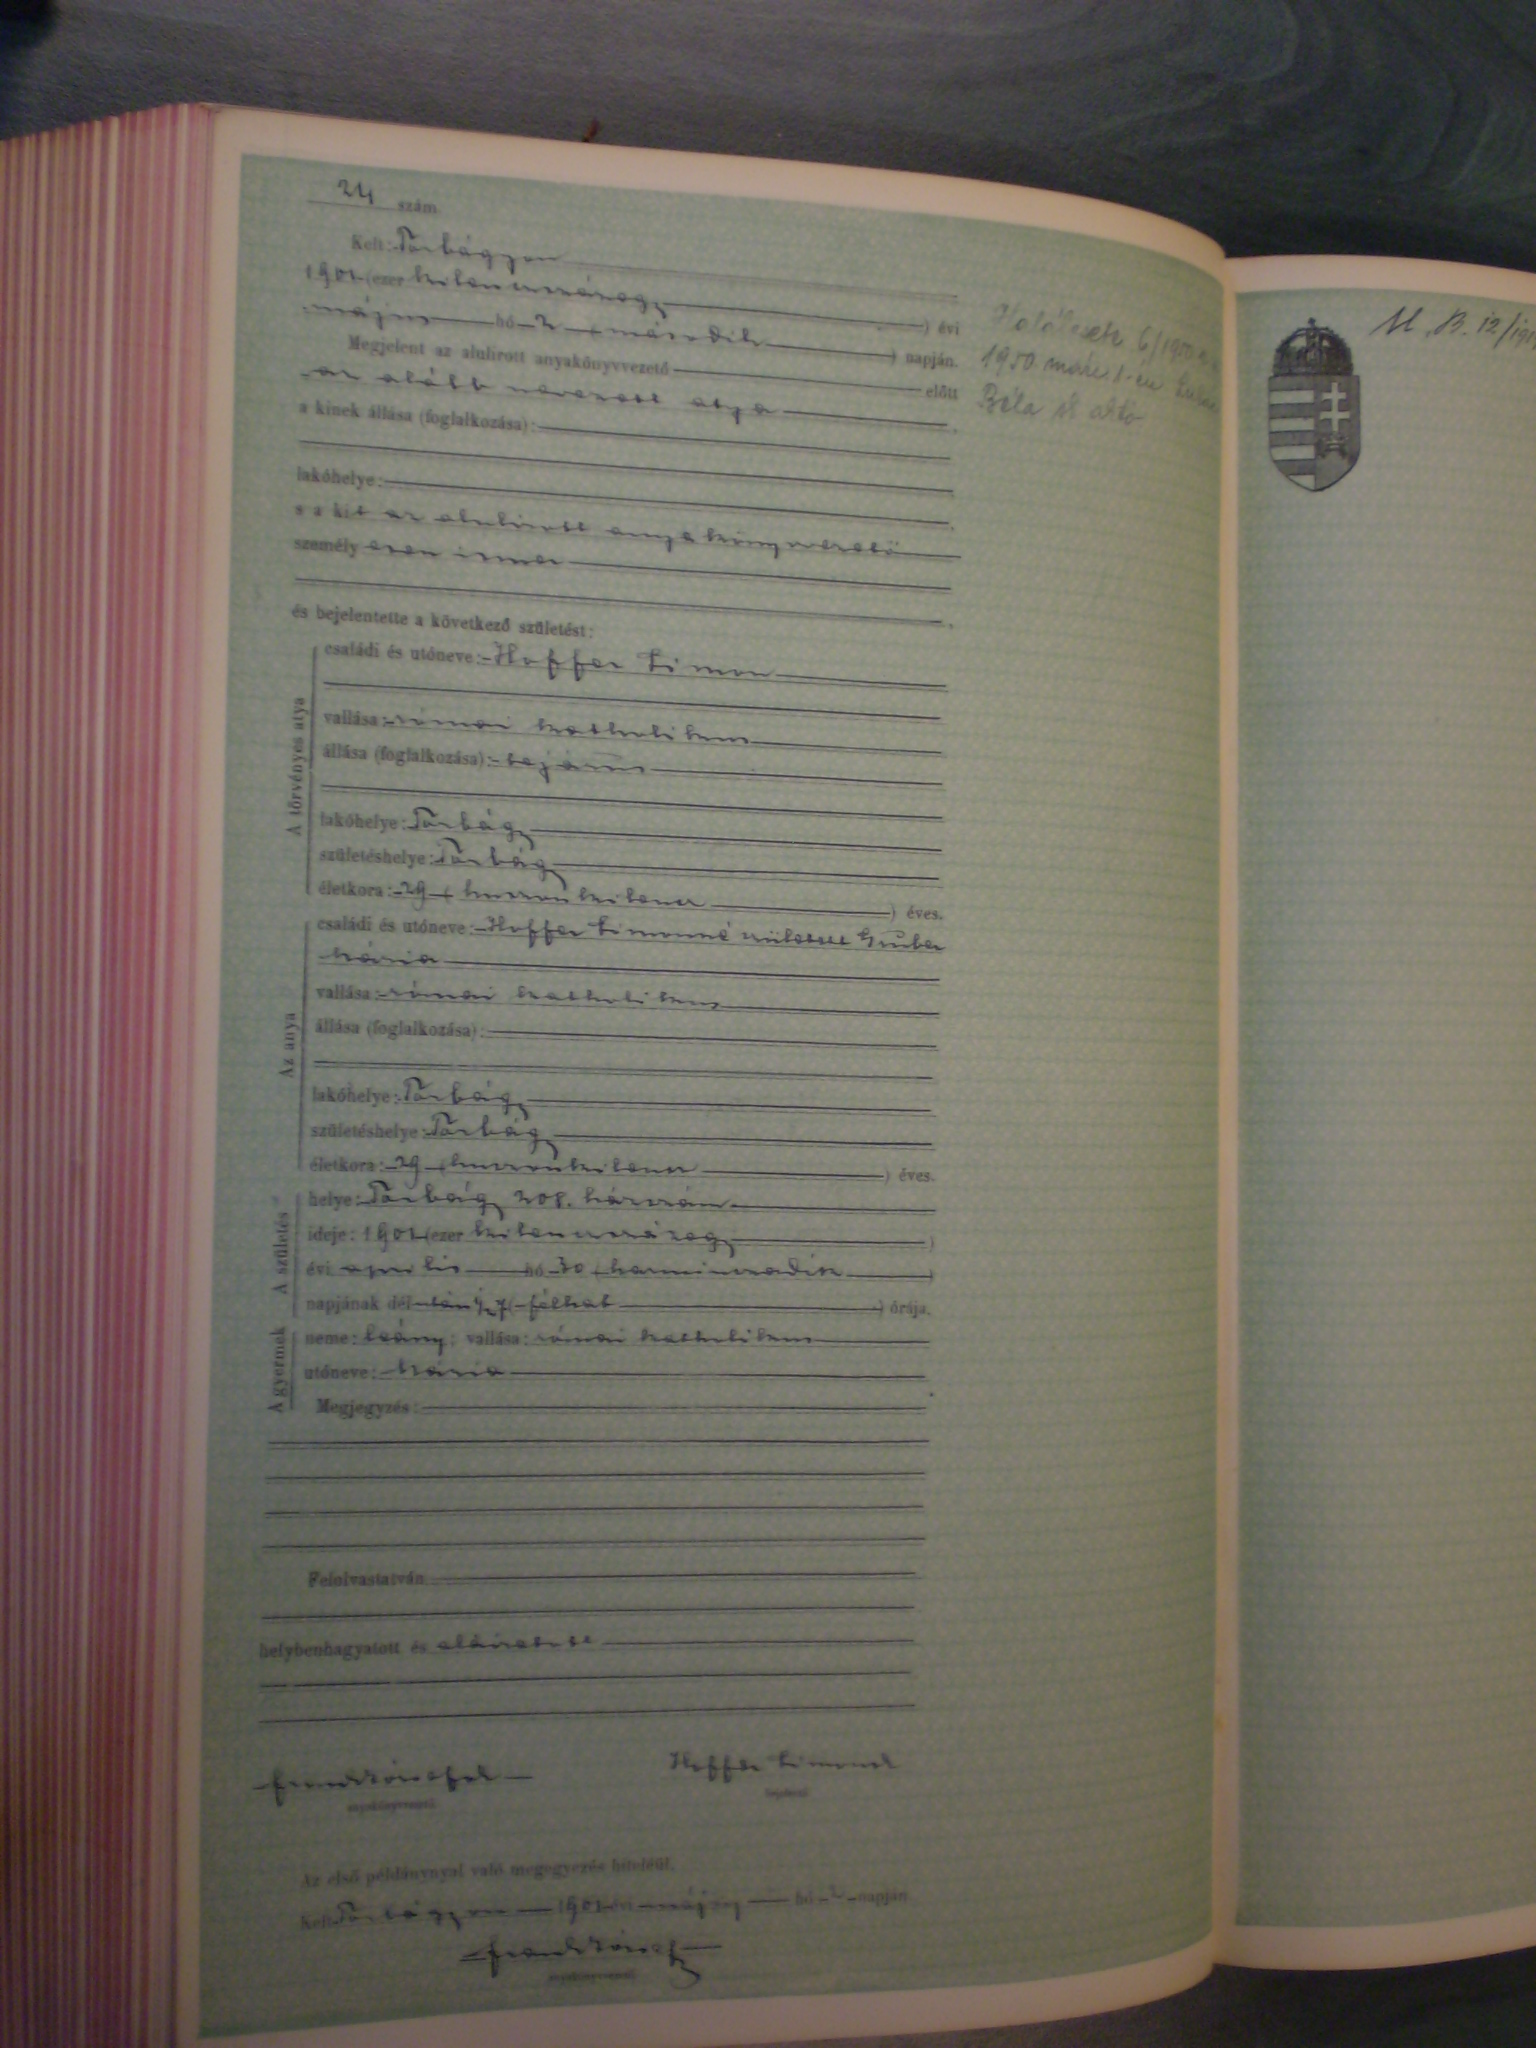 24 szám
Kelt: Torbágyon
1901 (ezer kilenczszázegy ) évi
május hó 2 ( második ) napján.
Megjelent az alulirott anyakönyvvezető előtt
az alább nevezett atya
a kinek állása (foglalkozása):
lakóhelye:
s a kit az alulirott anyakönyvvezető
személyesen ismer
és bejelentette a következő születést:
A törvényes atya
családi és utóneve: Hoffer Simon
vallása: római katholikus
állása (foglalkozása):
lakóhelye: Torbágy
születéshelye: Torbágy
életkora: 29 ( huszonkilencz ) éves.
Az anya
családi és utóneve: Hoffer Simonné született Gruber
Mária
vallása: római katholikus
állása (foglalkozása):
lakóhelye: Torbágy
születéshelye: Torbágy
életkora: 29 ( huszonkilencz ) éves.
A születés
helye: Torbágy 208. házszám
ideje: 1901 (ezer kilenczszázegy )
évi április hó 30 ( harminczadik )
napjának délután ½7 ( félhét ) órája.
A gyermek
neme: leány; vallása: római katholikus
utóneve: Mária
Megjegyzés:
Felolvastatván
helybenhagyatott és aláiratott
Hoffer Simon
anyakönyvvezető
bejelentő
Az első példánynyal való megegyezés hiteléül.
Kelt Torbágyon 1901 évi május hó 2 napján
anyakönyvvezető
Halálesete 6/1950
1950. márc. 1-én
Béla
M. B. 12/191